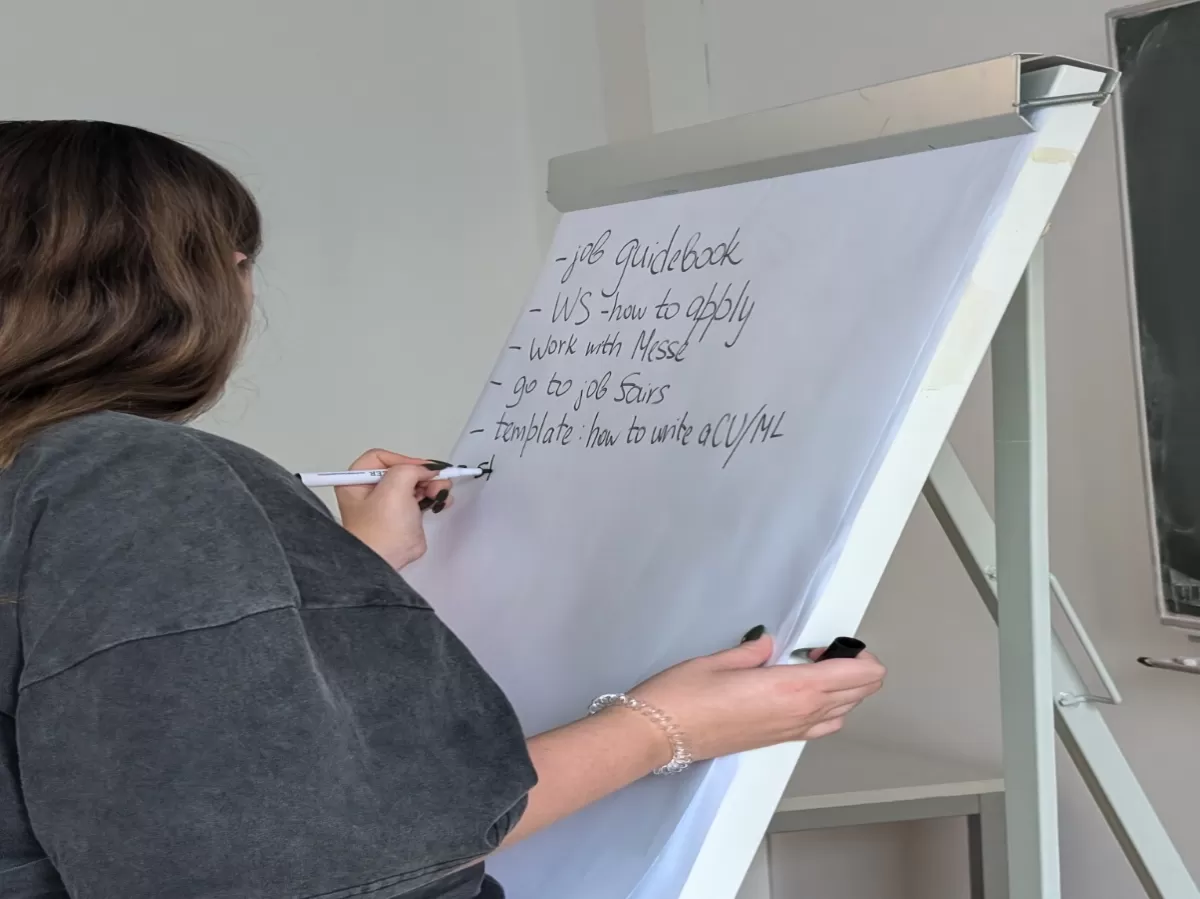 - job guidebook
- WS - how to apply
- Work with Messe
- go to job fairs
- template: how to write a CV/ML